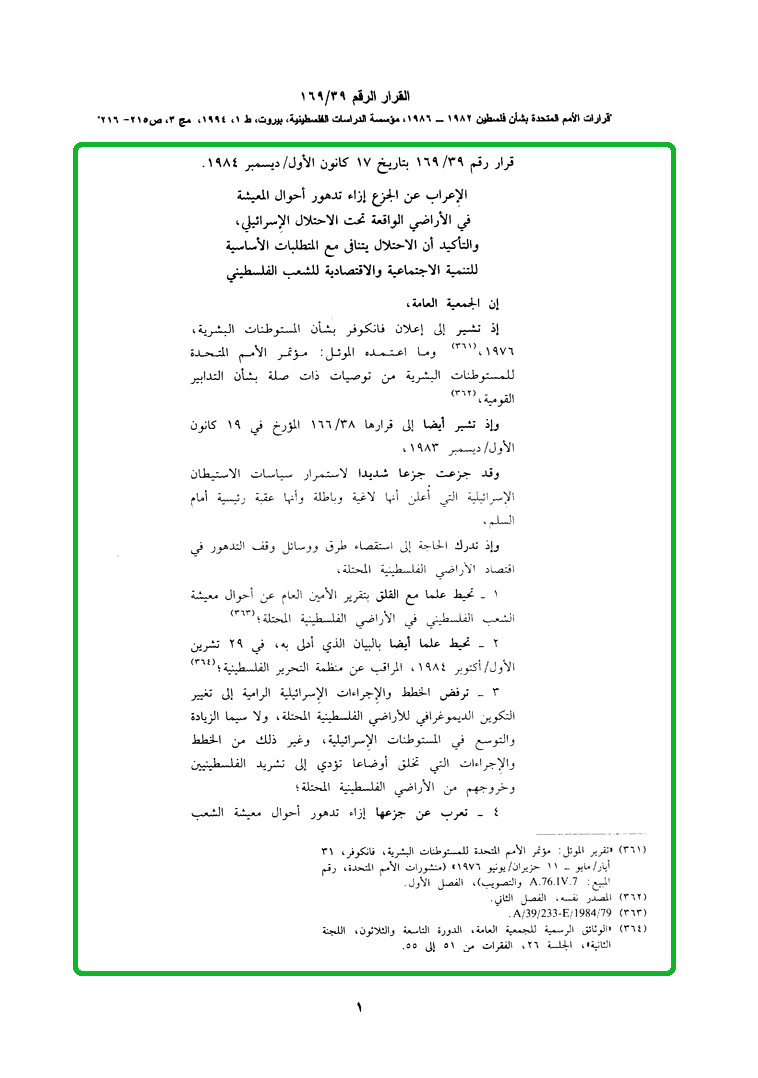 القرار الرقم ١٦٩/٣٩
"قرارات الأمم المتحدة بشأن فلسطين ١٩٨٢ ــ ١٩٨٦، مؤسسة الدراسات الفلسطينية، بيروت، ط ١، ١٩٩٤، مج ٣، ص٢١٥- ٢١٦"
قرار رقم ١٦٩/٣٩ بتاريخ ١٧ كانون الأول/ديسمبر ١٩٨٤.
الإعراب عن الجزع إزاء تدهور أحوال المعيشة
في الأراضي الواقعة تحت الاحتلال الإسرائيلي،
والتأكيد أن الاحتلال يتنافى مع المتطلبات الأساسية
للتنمية الاجتماعية والاقتصادية للشعب الفلسطيني
إن الجمعية العامة،
إذ تشير إلى إعلان فانكوفر بشأن المستوطنات البشرية،
١٩٧٦،(٣٦١) وما اعتمده الموئل: مؤتمر الأمم المتحدة
للمستوطنات البشرية من توصيات ذات صلة بشأن التدابير
القومية،(٣٦٢)
وإذ تشير أيضا إلى قرارها ١٦٦/٣٨ المؤرخ في ١٩ كانون
الأول/ديسمبر ١٩٨٣،
وقد جزعت جزعا شديدا لاستمرار سياسات الاستيطان
الإسرائيلية التي أُعلن أنها لاغية وباطلة وأنها عقبة رئيسية أمام
السلم،
وإذ تدرك الحاجة إلى استقصاء طرق ووسائل وقف التدهور في
اقتصاد الأراضي الفلسطينية المحتلة،
١ ـ تحيط علما مع القلق بتقرير الأمين العام عن أحوال معيشة
الشعب الفلسطيني في الأراضي الفلسطينية المحتلة؛(٣٦٣)
٢ ـ تحيط علما أيضا بالبيان الذي أدلى به، في ٢٩ تشرين
الأول/أكتوبر ١٩٨٤، المراقب عن منظمة التحرير الفلسطينية؛(٣٦٤)
٣ ـ ترفض الخطط والإجراءات الإسرائيلية الرامية إلى تغيير
التكوين الديموغرافي للأراضي الفلسطينية المحتلة، ولا سيما الزيادة
والتوسع في المستوطنات الإسرائيلية، وغير ذلك من الخطط
والإجراءات التي تخلق أوضاعا تؤدي إلى تشريد الفلسطينيين
وخروجهم من الأراضي الفلسطينية المحتلة؛
٤ ـ تعرب عن جزعها إزاء تدهور أحوال معيشة الشعب
(٣٦١) «تقرير الموئل: مؤتمر الأمم المتحدة للمستوطنات البشرية، فانكوفر، ٣١
أيار/مايو ــ ١١ حزيران/يونيو ١٩٧٦» (منشورات الأمم المتحدة، رقم
المبيع: A.76.IV.7 والتصويب)، الفصل الأول.
(٣٦٢) المصدر نفسه، الفصل الثاني.
(٣٦٣) A/39/233-E/1984/79.
(٣٦٤) «الوثائق الرسمية للجمعية العامة، الدورة التاسعة والثلاثون، اللجنة
الثانية»، الجلسة ٢٦، الفقرات من ٥١ إلى ٥٥.
١